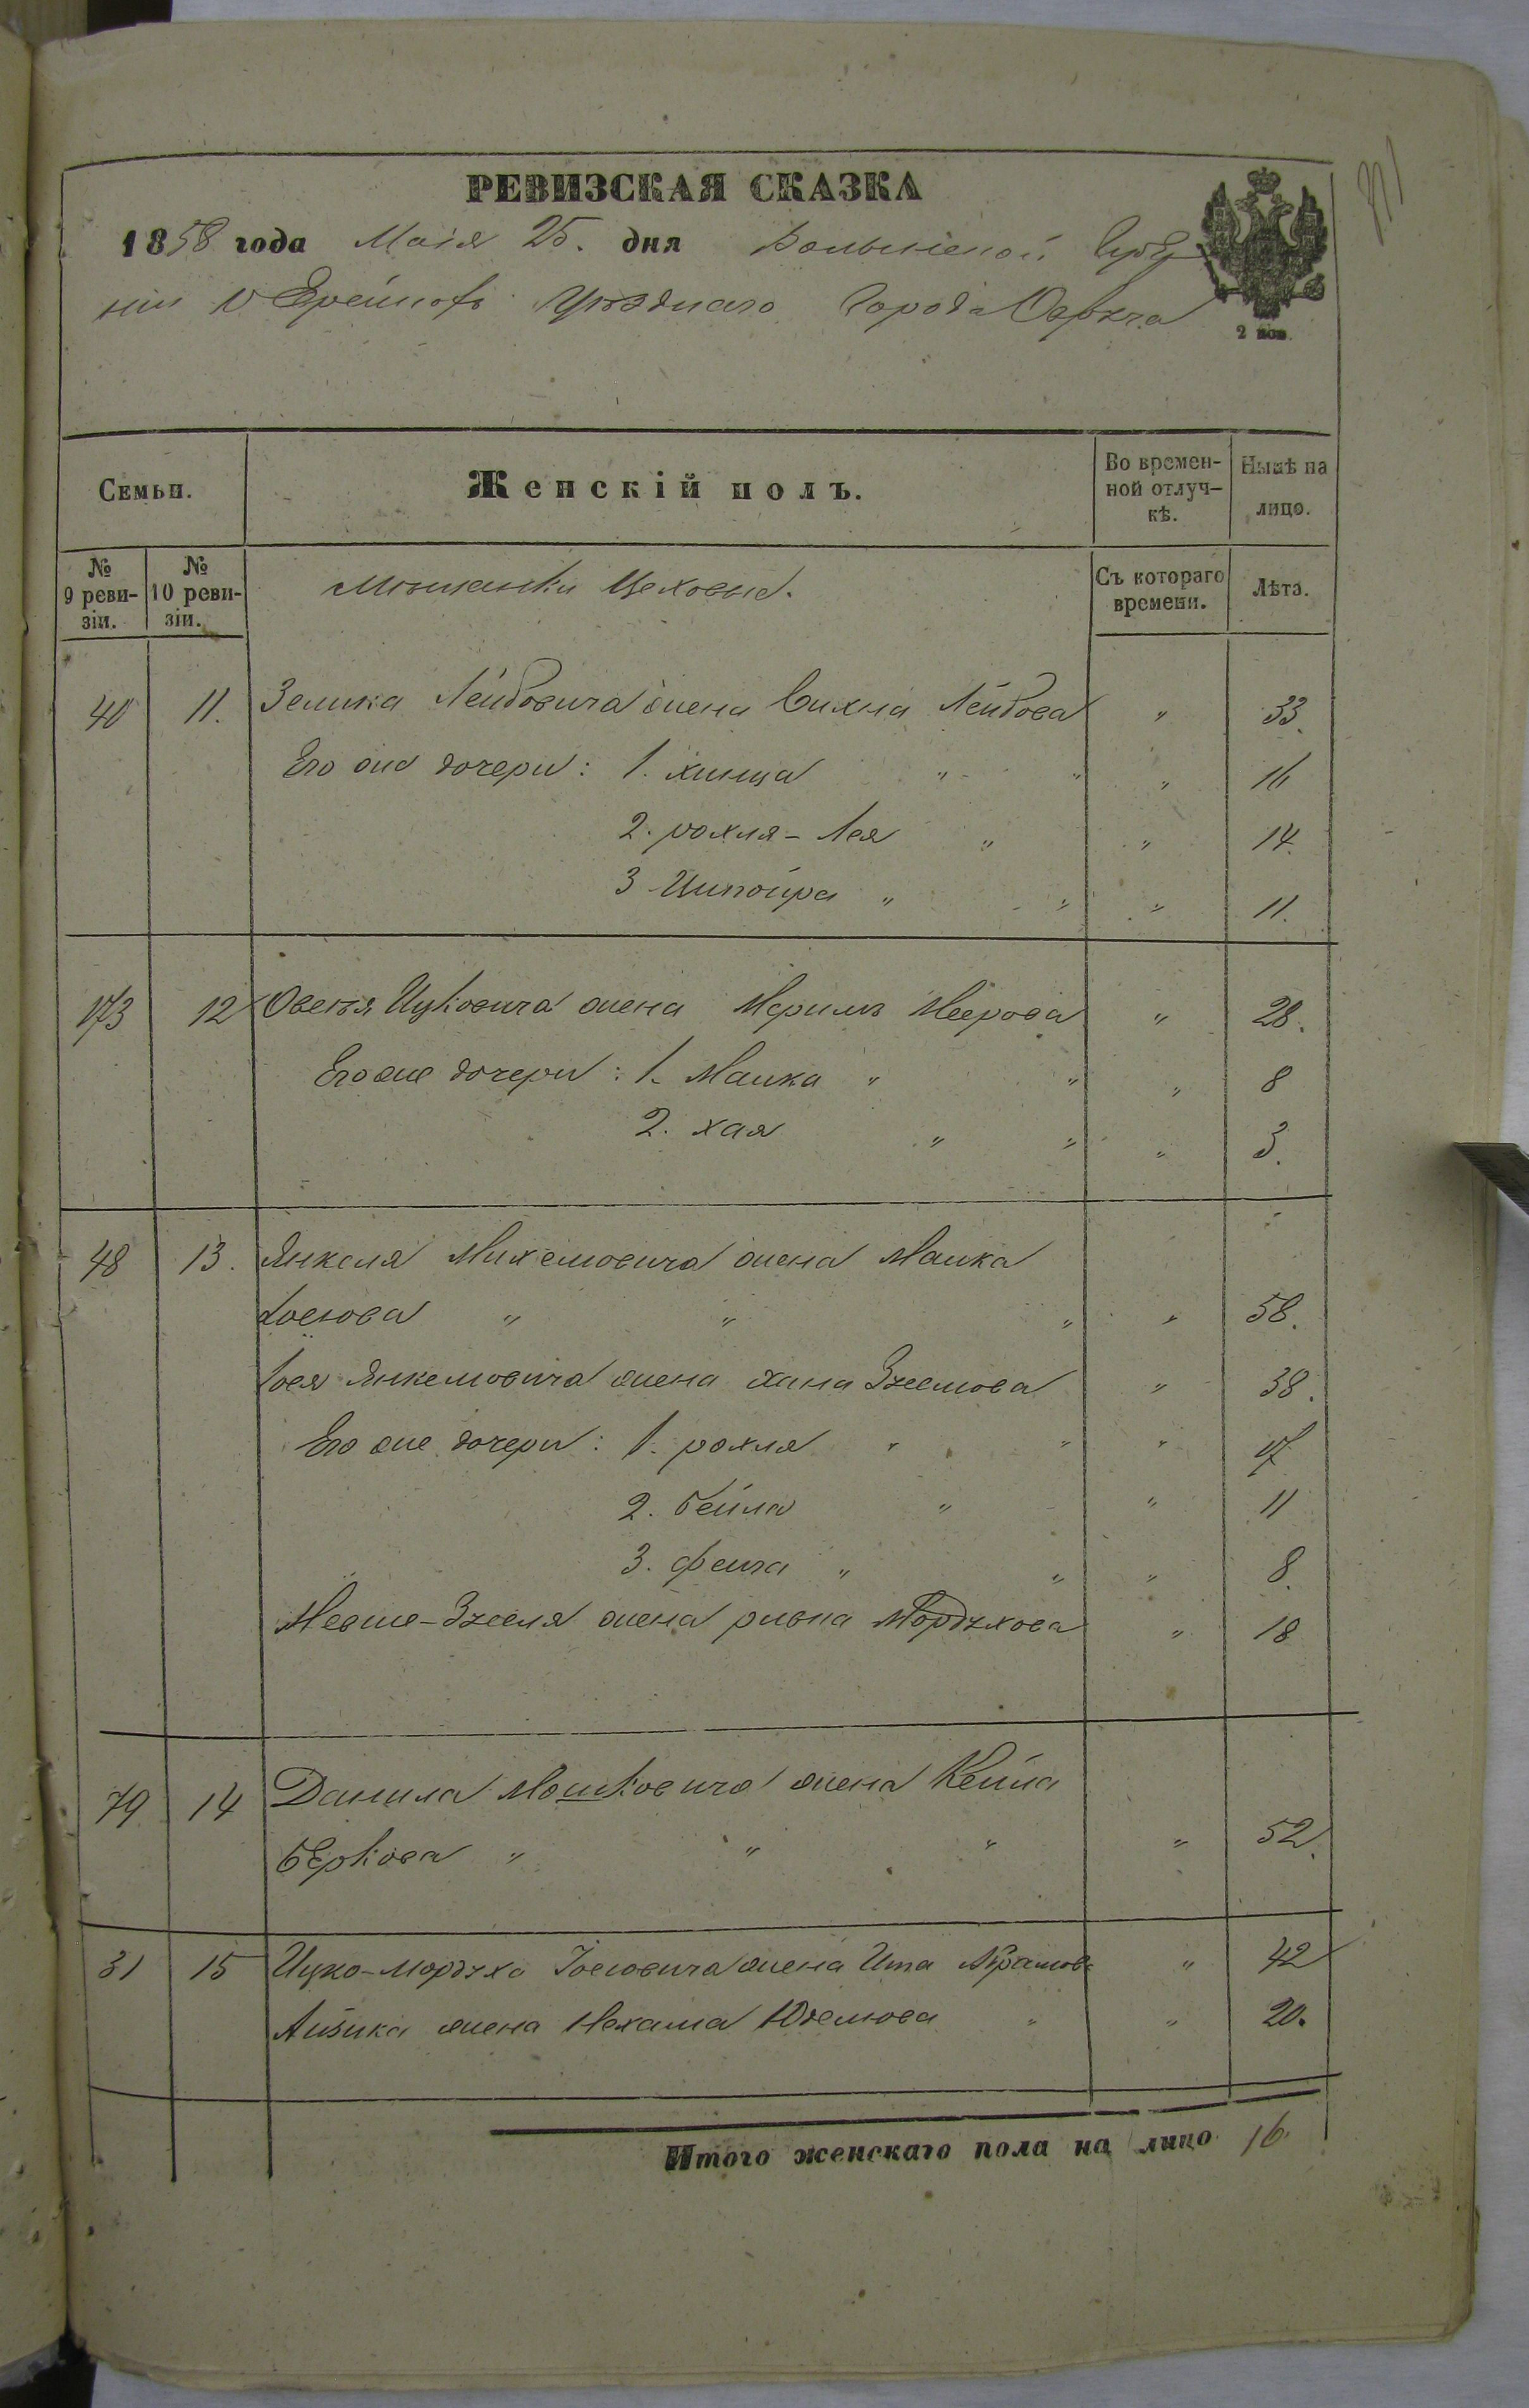 РЕВИЗСКАЯ СКАЗКА
1858 года Маія 25. дня Волынской Губер
ніи о Евреяхъ Уѣзднаго Города Овруча
2 коп.
Семьи.
Женскій полъ.
Во времен-
ной отлуч-
кѣ.
Нынѣ на
лицо.
№
9 реви-
зіи.
№
10 реви-
зіи.
Мѣщанки Цеховые.
Съ котораго
времени.
Лѣта.
40 11. Зелика Лейбовича жена Сихна Лейбова " 33.
Его же дочери: 1. Хинца " " " 16
2. рохля-Лея " " 14.
3 Ципойра " " " 11.
173 12 Овсея Ицковича жена Меримъ Меерова " 28.
Его же дочери: 1. Малка " " " 8
2. хая " " " 3.
48 13. Янкеля Михелиовича жена Малка
" " " " 58.
Янкелиовича жена хана Зуселиова " 38.
Его же дочери: 1. рохля " " " 17
2. бейла " " 11
3. фейга " " " 8.
Мовше-Зуселя жена ривка Мордухова " 18
79 14 Данила Мошковича жена Кейла
Беркова " " " " 52.
31 15 Ицко-Мордуха Іосіовича жена Ита Абрамов " 42
Айзика жена Нехама Юделиова " " 20.
Итого женскаго пола на лицо 16.